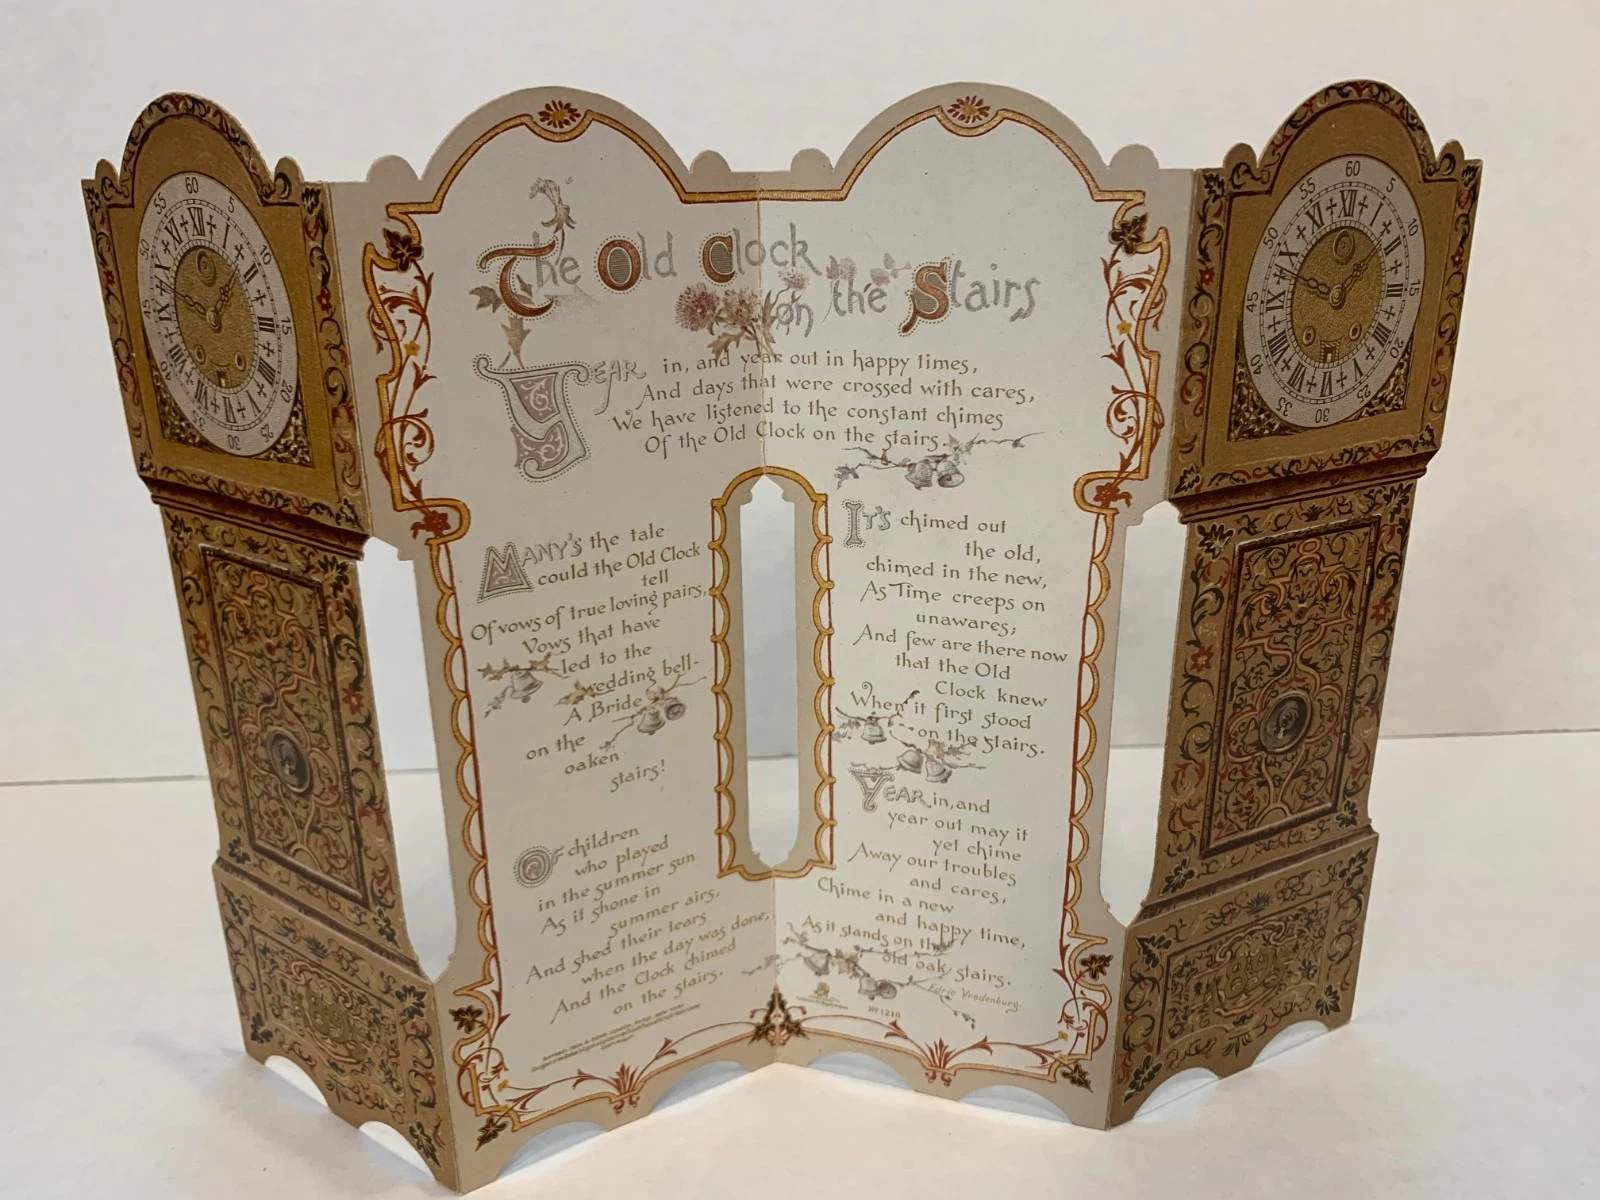 The Old Clock
on the Stairs
YEAR in, and year out in happy times,
And days that were crossed with cares,
We have listened to the constant chimes
Of the Old Clock on the stairs.
MANY'S the tale
could the Old Clock
tell
Of vows of true loving pairs,
Vows that have
led to the
wedding bell-
A Bride
on the
oaken
stairs!
OF children
who played
in the summer sun
As it shone in
summer airs,
And shed their tears
when the day was done,
And the Clock chimed
on the stairs.
RAPHAEL TUCK & SONS, LONDON, PARIS, NEW YORK
IT'S chimed out
the old,
chimed in the new,
As Time creeps on
unawares;
And few are there now
that the Old
Clock knew
When it first stood
on the stairs.
YEAR in, and
year out may it
yet chime
Away our troubles
and cares,
Chime in a new
and happy time,
As it stands on the
old oak stairs.
Edric Vredenburg.
No 1218
60 5 10 15 20 25 30 35 40 45 50 55
XII I II III IIII V VI VII VIII IX X XI
60 5 10 15 20 25 30 35 40 45 50 55
XII I II III IIII V VI VII VIII IX X XI